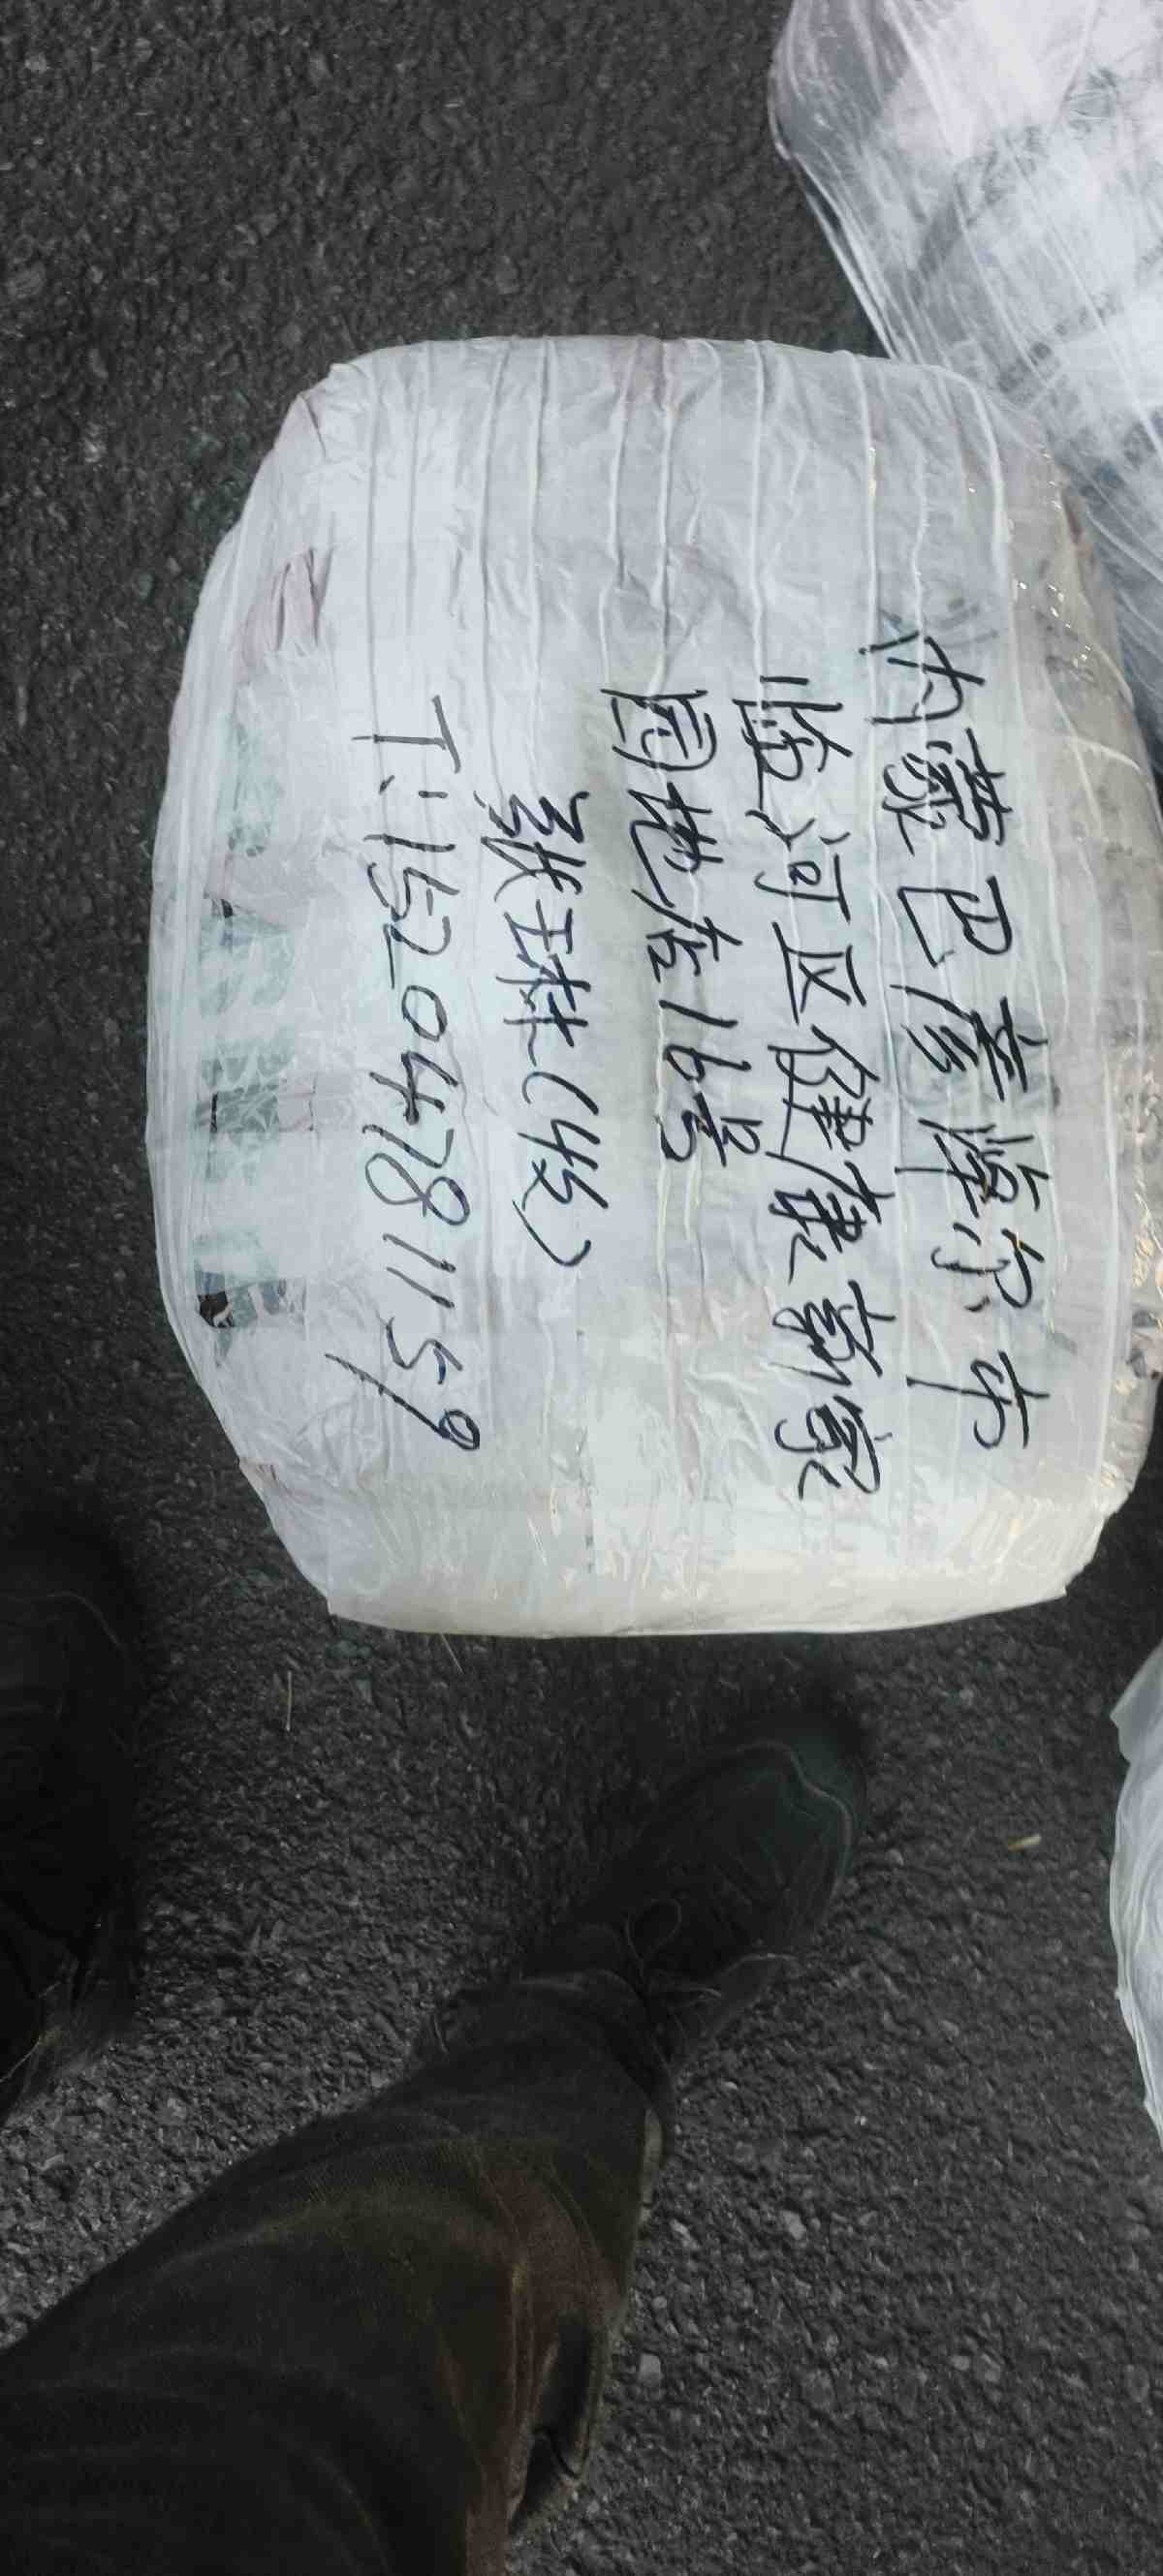 内蒙巴彦淖尔市
临河区健康新家
园地店16号
张琳(45)
T:15204781159